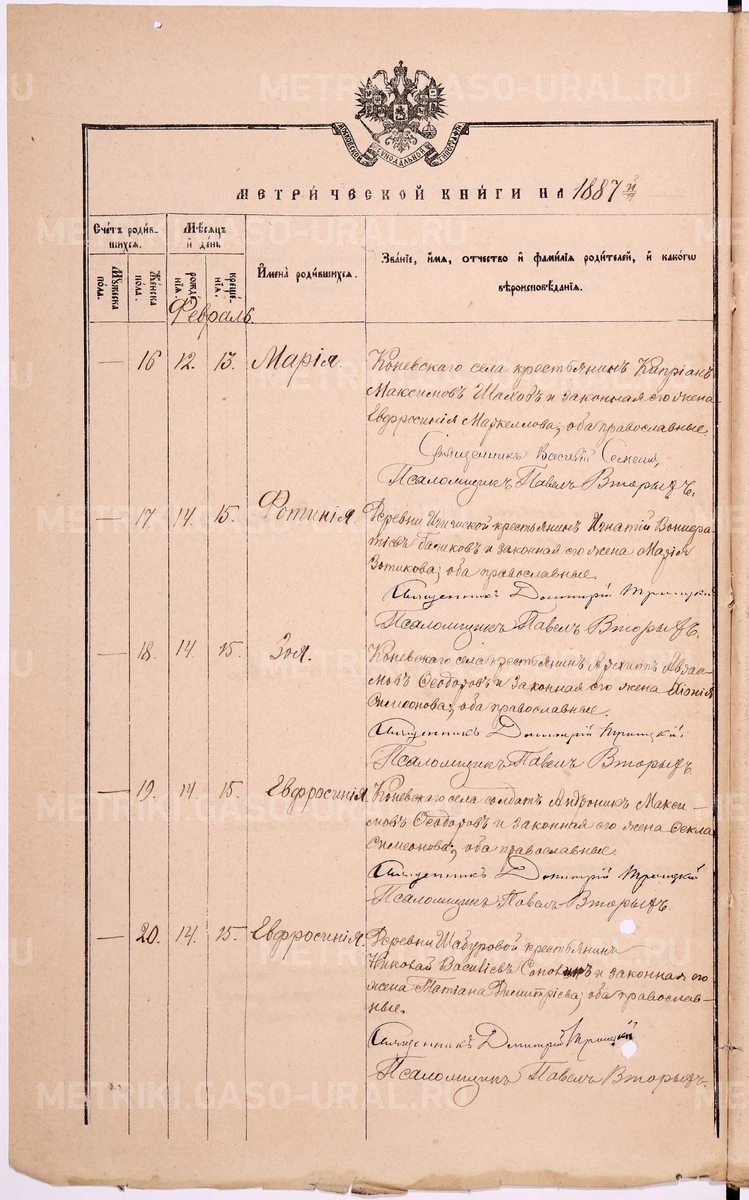 METRIKI.GASO-URAL.RU
МОСКОВСКОЙ СѴНОДАЛЬНОЙ ТИПОГРАФІИ
МЕТРИ́ЧЕСКОЙ КНИ́ГИ НА 1887й
Сче́тъ роди́в-
шихся.
Мѣ́сяцъ
и҆ де́нь
И҆мена̀ роди́вшихся.
Зва́нїе, и҆́мя, ѻ҆́тчество и҆ фами́лїѧ роди́телей, и҆ како́гѡ
вѣроисповѣ́данїѧ.
Мꙋ́жеска по́ла.
Же́нска по́ла.
рожде́нїѧ
креще́нїѧ.
Февраль.
— 16 12. 13. Марія.
Коневскаго села крестьянинъ Капріанъ
Максимовъ Шаховъ и законная его жена
Евфросинія Маркеллова; оба православные.
Священникъ Василій
Псаломщикъ Павелъ Вторыхъ.
— 17. 14. 15. Фотинія
Деревни крестьянинъ Игнатій
и законная его жена Марія
Зотикова; оба православные.
Священникъ Дмитрій Троицкій
Псаломщикъ Павелъ Вторыхъ.
— 18. 14 15. Зоя.
Коневскаго села крестьянинъ Архиппъ Авраа-
мовъ Ѳеодоровъ и законная его жена
Симеонова; оба православные.
Священникъ Дмитрій Троицкій.
Псаломщикъ Павелъ Вторыхъ.
— 19. 14. 15. Евфросинія
Коневскаго села солдатъ Андроникъ Макси-
мовъ Ѳеодоровъ и законная его жена Ѳекла
Симеонова; оба православные.
Священникъ Дмитрій Троицкій
Псаломщикъ Павелъ Вторыхъ.
— 20. 14. 15. Евфросинія.
Деревни Шабуровой крестьянинъ
Николай Василіевъ и законная его
жена Татіана Димитріева; оба православ-
ные.
Священникъ Дмитрій Троицкій
Псаломщикъ Павелъ Вторыхъ.
METRIKI.GASO-URAL.RU